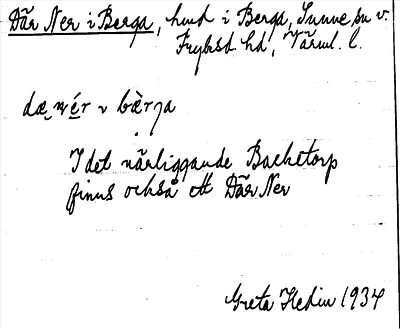 Där Ner i Berga, hmd i Berga, Sunne sn v.
Fryksd hd, Värml. l.
dæ wér ɩ bæ̀rga
I det närliggande Backetorp
finns också ett Där Ner
Greta Hedin 1934